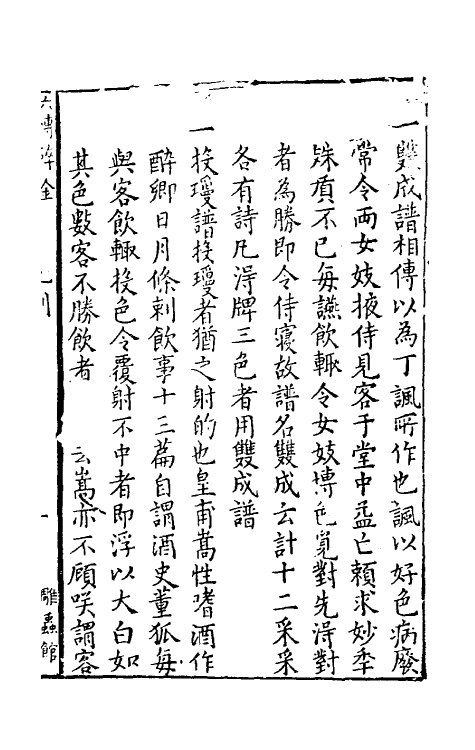 一雙成譜相傳以為丁諷所作也諷以好色病廢
常令兩女妓掖侍見客于堂中益亡賴求妙年
殊質不已每讌飲輙令女妓摶色覓對先淂對
者為勝即令侍寢故譜名雙成云計十二采采
各有詩凡淂牌三色者用雙成譜
一投瓊譜投瓊者猶之射的也皇甫嵩性嗜酒作
醉鄉日月條刺飲事十三篇自謂酒史董狐每
與客飲輙投色令覆射不中者即浮以大白如
其色數客不勝飲者 云嵩亦不顧咲謂客
一
雕蟲館